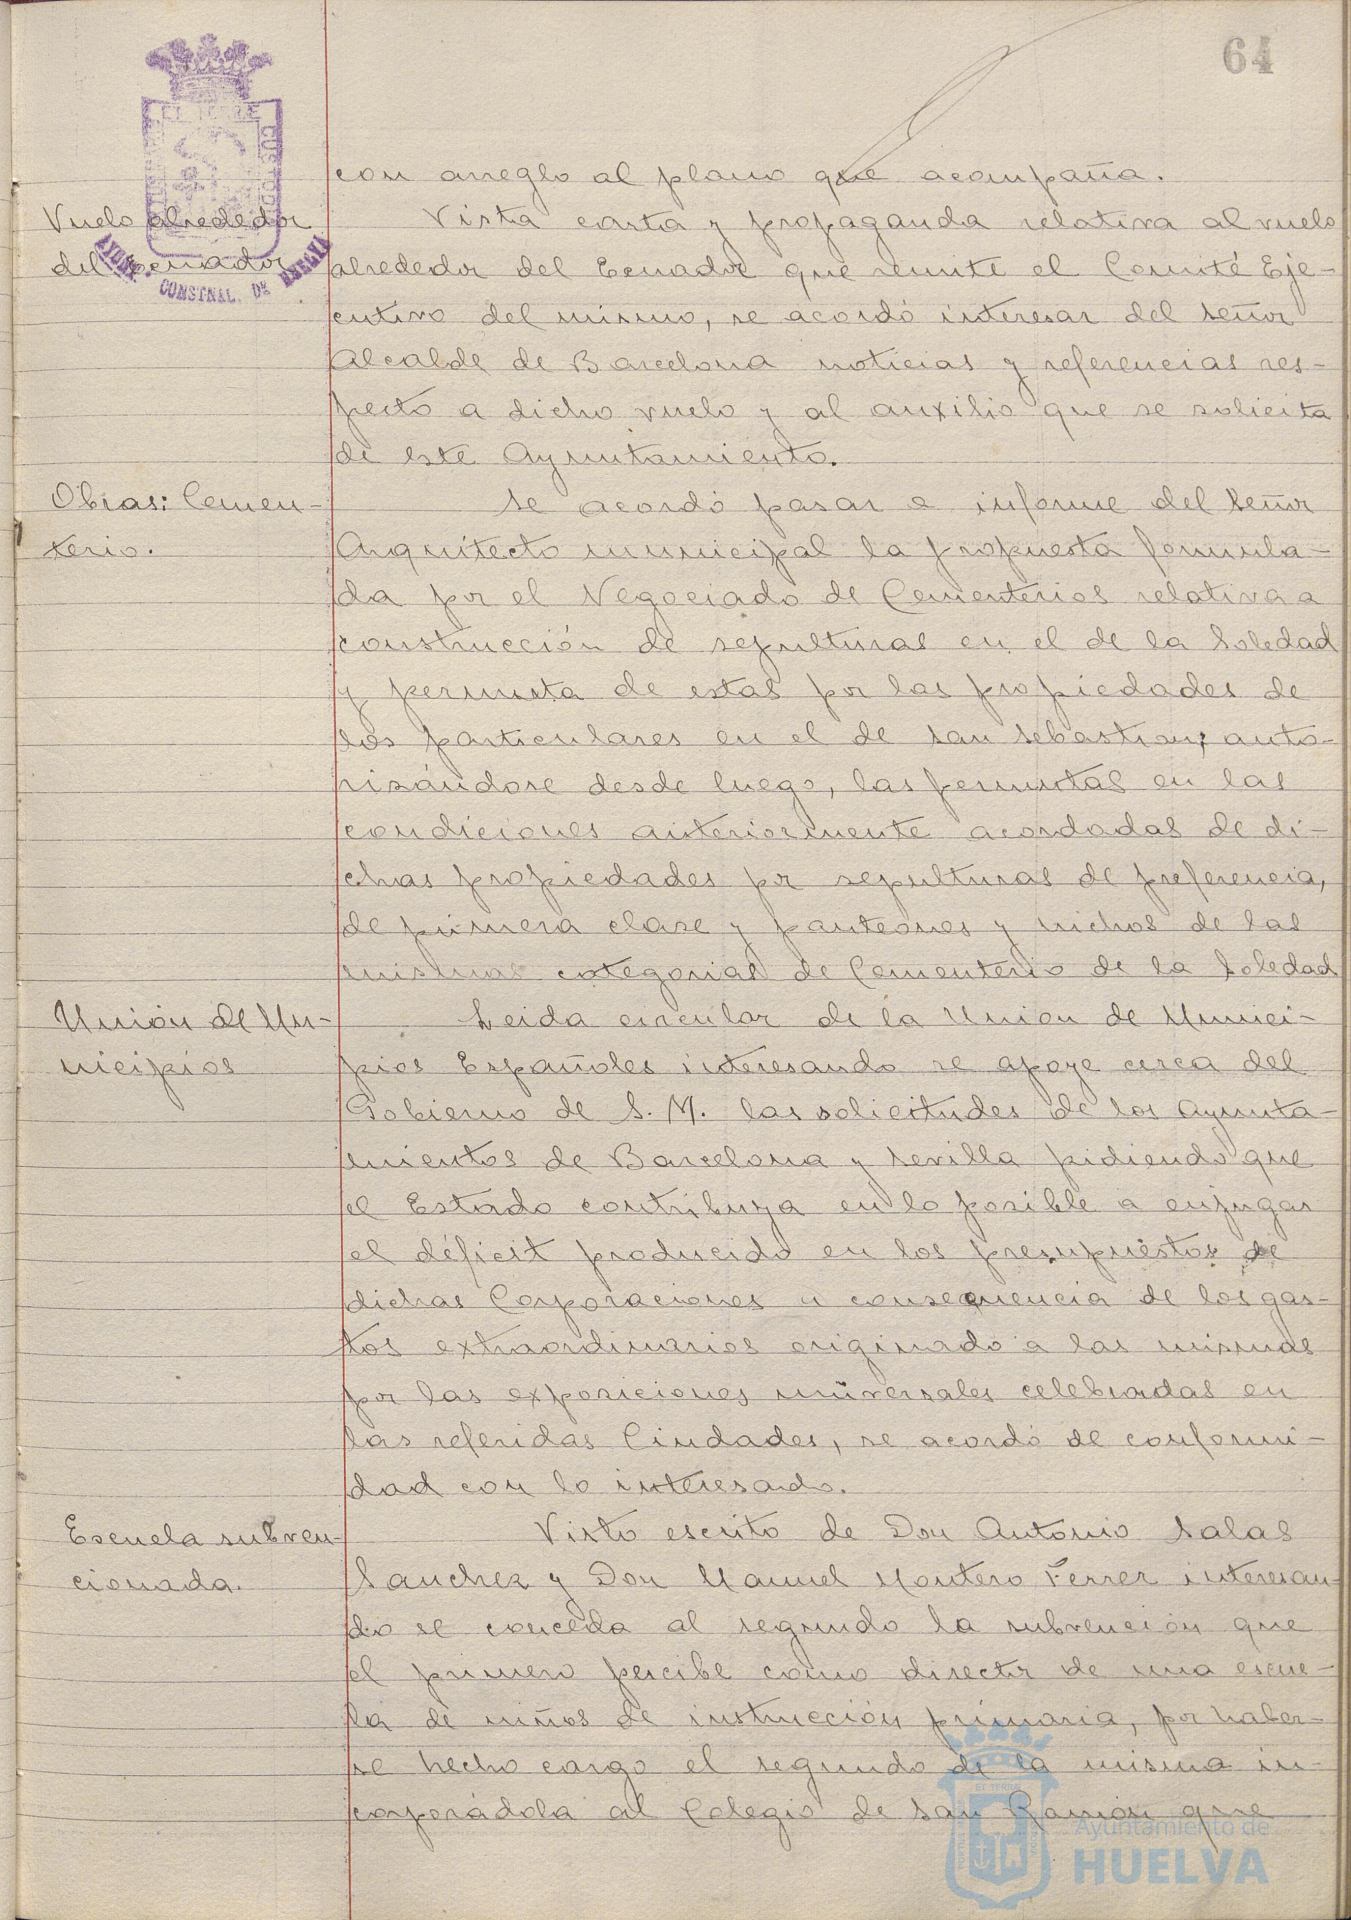 64
con arreglo al plano que acompaña.
Vuelo alrededor
del Ecuador
Vista carta y propaganda relativa al vuelo
alrededor del Ecuador que remite el Comité Eje-
cutivo del mismo, se acordó interesar del señor
Alcalde de Barcelona noticias y referencias res-
pecto a dicho vuelo y al auxilio que se solicita
de este Ayuntamiento.
Obras: Cemen-
terio.
Se acordó pasar a informe del señor
Arquitecto municipal la propuesta formula-
da por el Negociado de Cementerios relativa a
construcción de sepulturas en el de la Soledad
y permuta de estas por las propiedades de
los particulares en el de San Sebastian; auto-
rizándose desde luego, las permutas en las
condiciones anteriormente acordadas de di-
chas propiedades por sepulturas de preferencia,
de primera clase y panteones y nichos de las
mismas categorias de Cementerio de la Soledad
Unión de Mu-
nicipios
Leida circular de la Union de Munici-
pios Españoles interesando se apoye cerca del
Gobierno de S. M. las solicitudes de los Ayunta-
mientos de Barcelona y Sevilla pidiendo que
el Estado contribuya en lo posible a enjugar
el déficit producido en los presupuestos de
dichas Corporaciones a consecuencia de los gas-
tos extraordinarios originado a las mismas
por las exposiciones universales celebradas en
las referidas Ciudades, se acordó de conformi-
dad con lo interesado.
Escuela subven-
cionada.
Visto escrito de Don Antonio Salas
Sanchez y Don Manuel Montero Ferrer interesan-
do se conceda al segundo la subvención que
el primero percibe como director de una escue-
la de niños de instrucción primaria, por haber-
se hecho cargo el segundo de la misma in-
corporádola al Colegio de San Ramón que
AYUNT. CONSTNAL. DE HUELVA
Ayuntamiento de
HUELVA